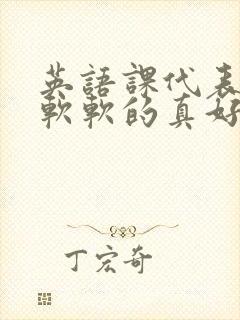 英語課代表
軟軟的真好
丁宏奇